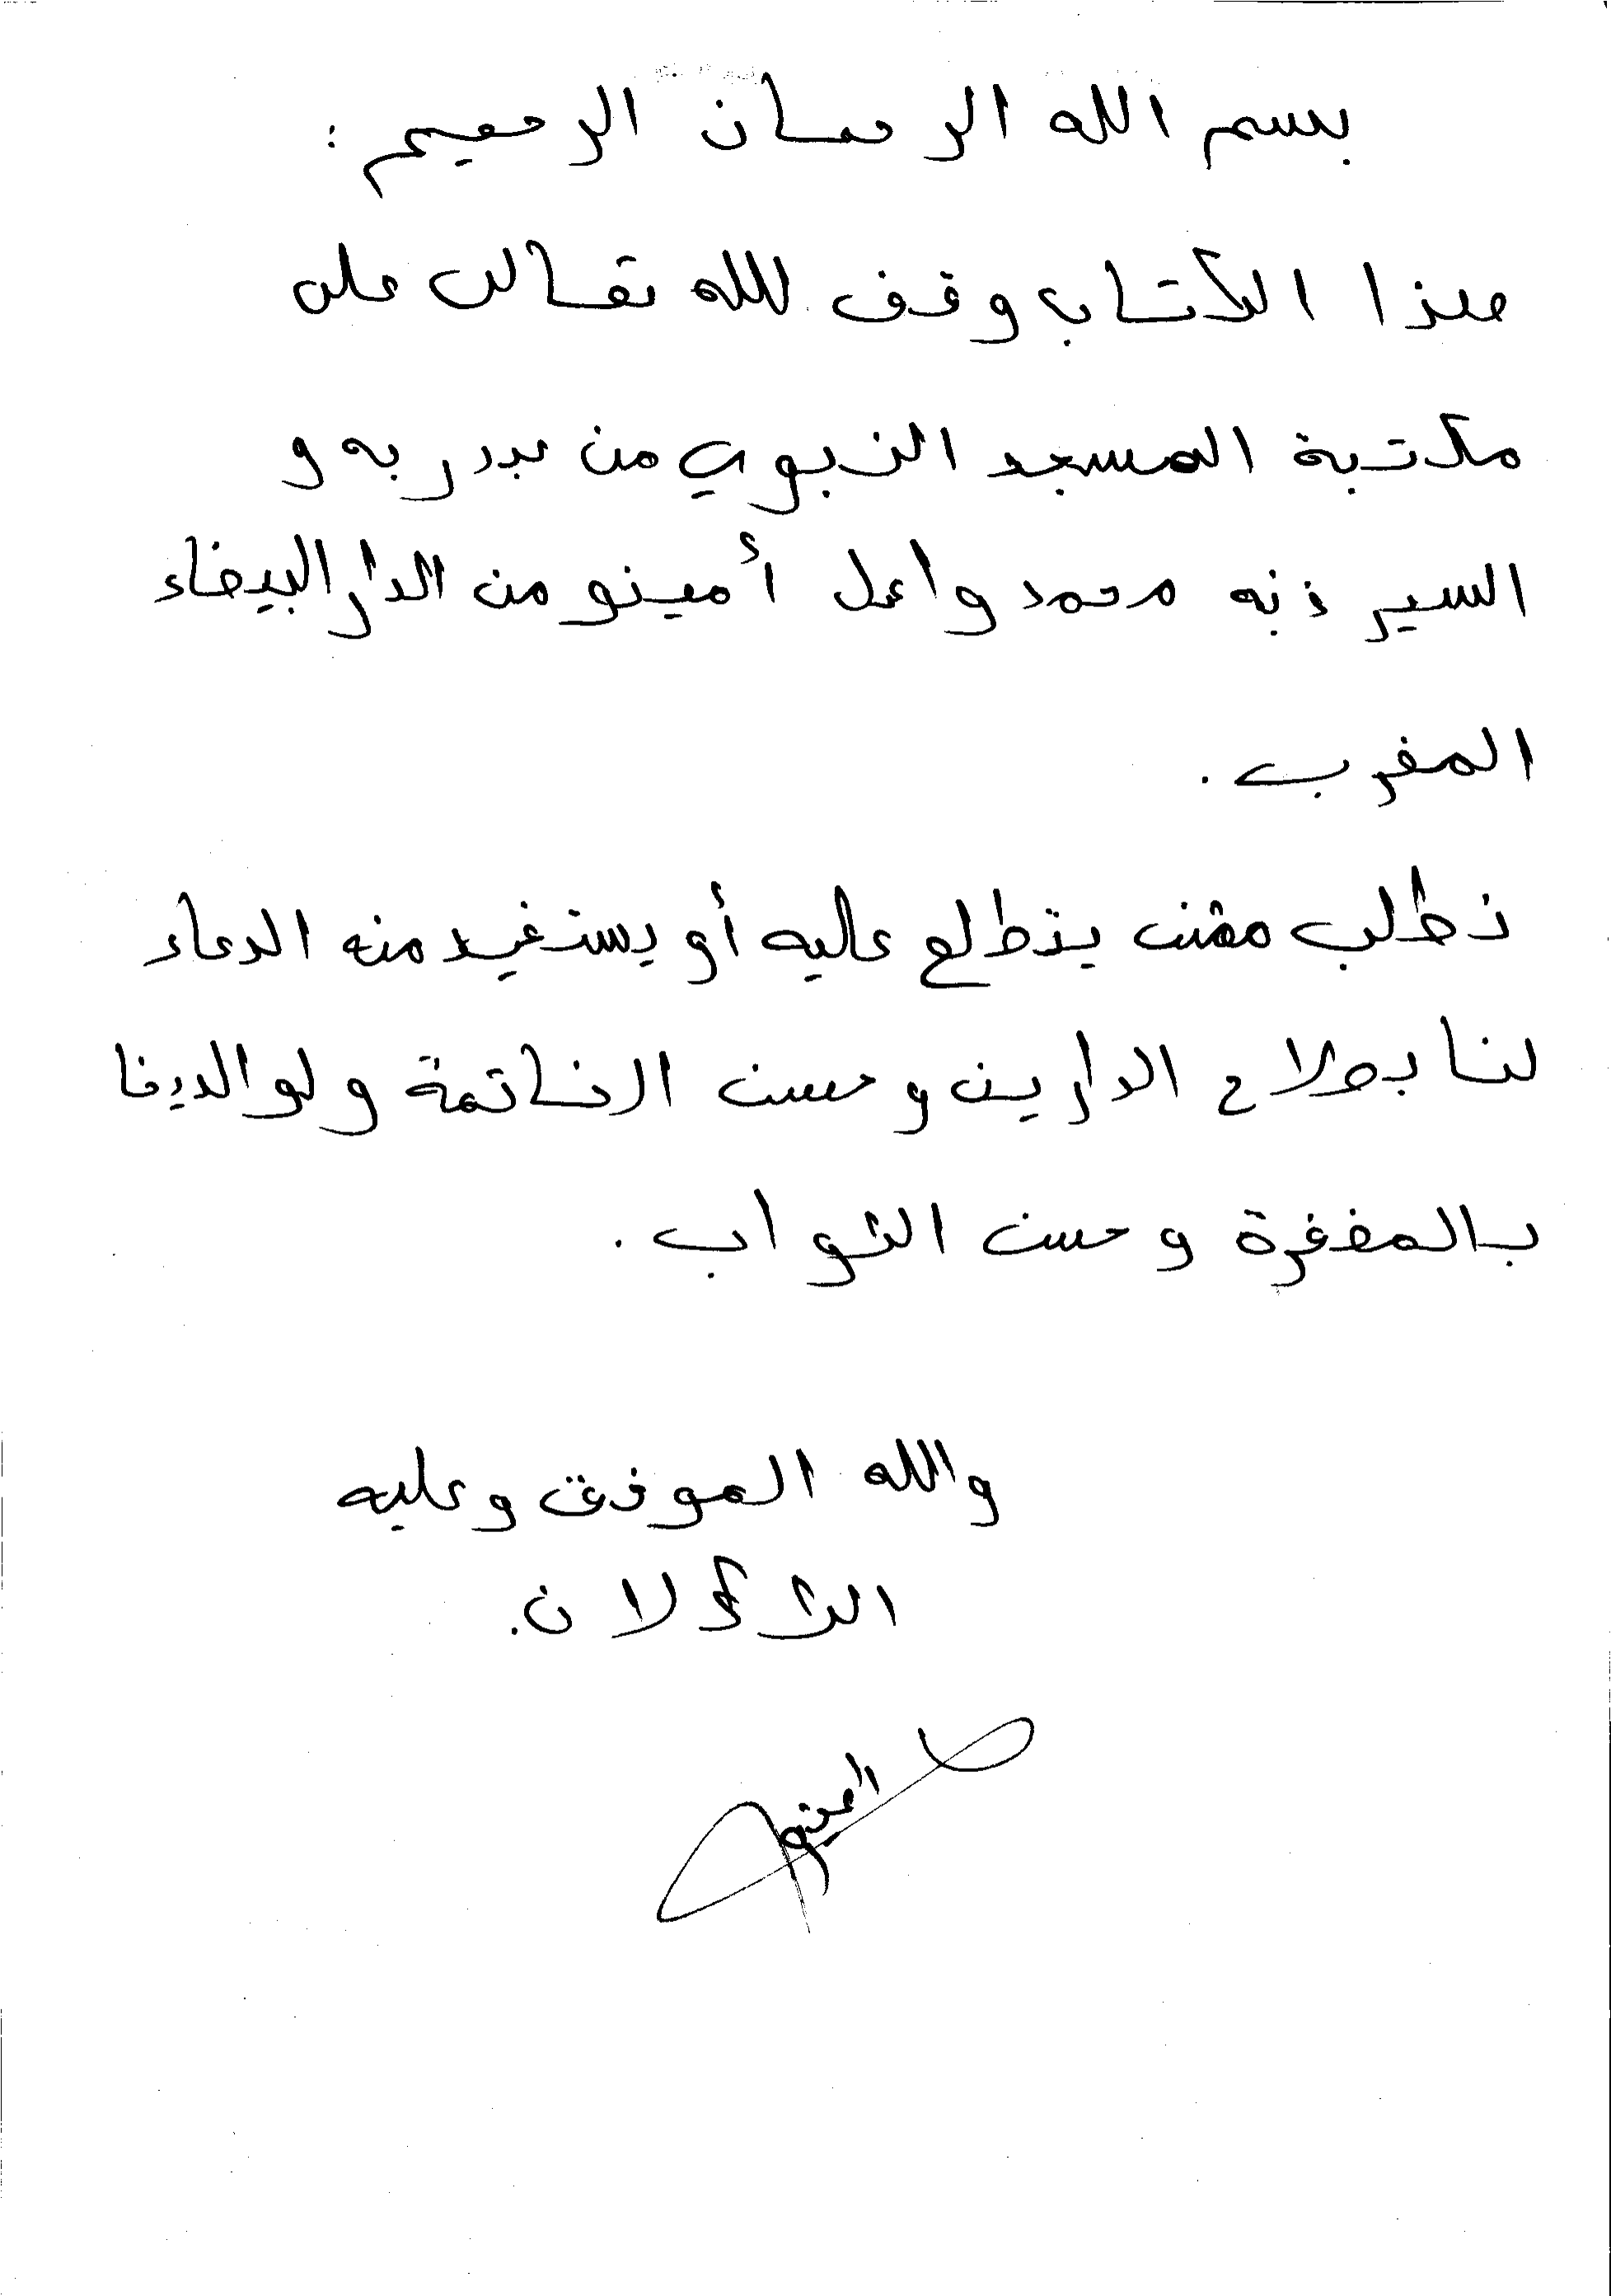 بسم الله الرحمان الرحيم :
هذا الكتاب وقف لله تعالى على
مكتبة المسجد النبوي من عبد ربه و
السير ذنبه محمد واعل أمينو من الدار البيضاء
المغرب .
نطلب ممن يطلع عليه أو يستفيد منه الدعاء
لنا بصلاح الدارين وحسن الخاتمة ولوالدينا
بالمغفرة وحسن الثواب .
والله الموفق وعليه
التكلان .